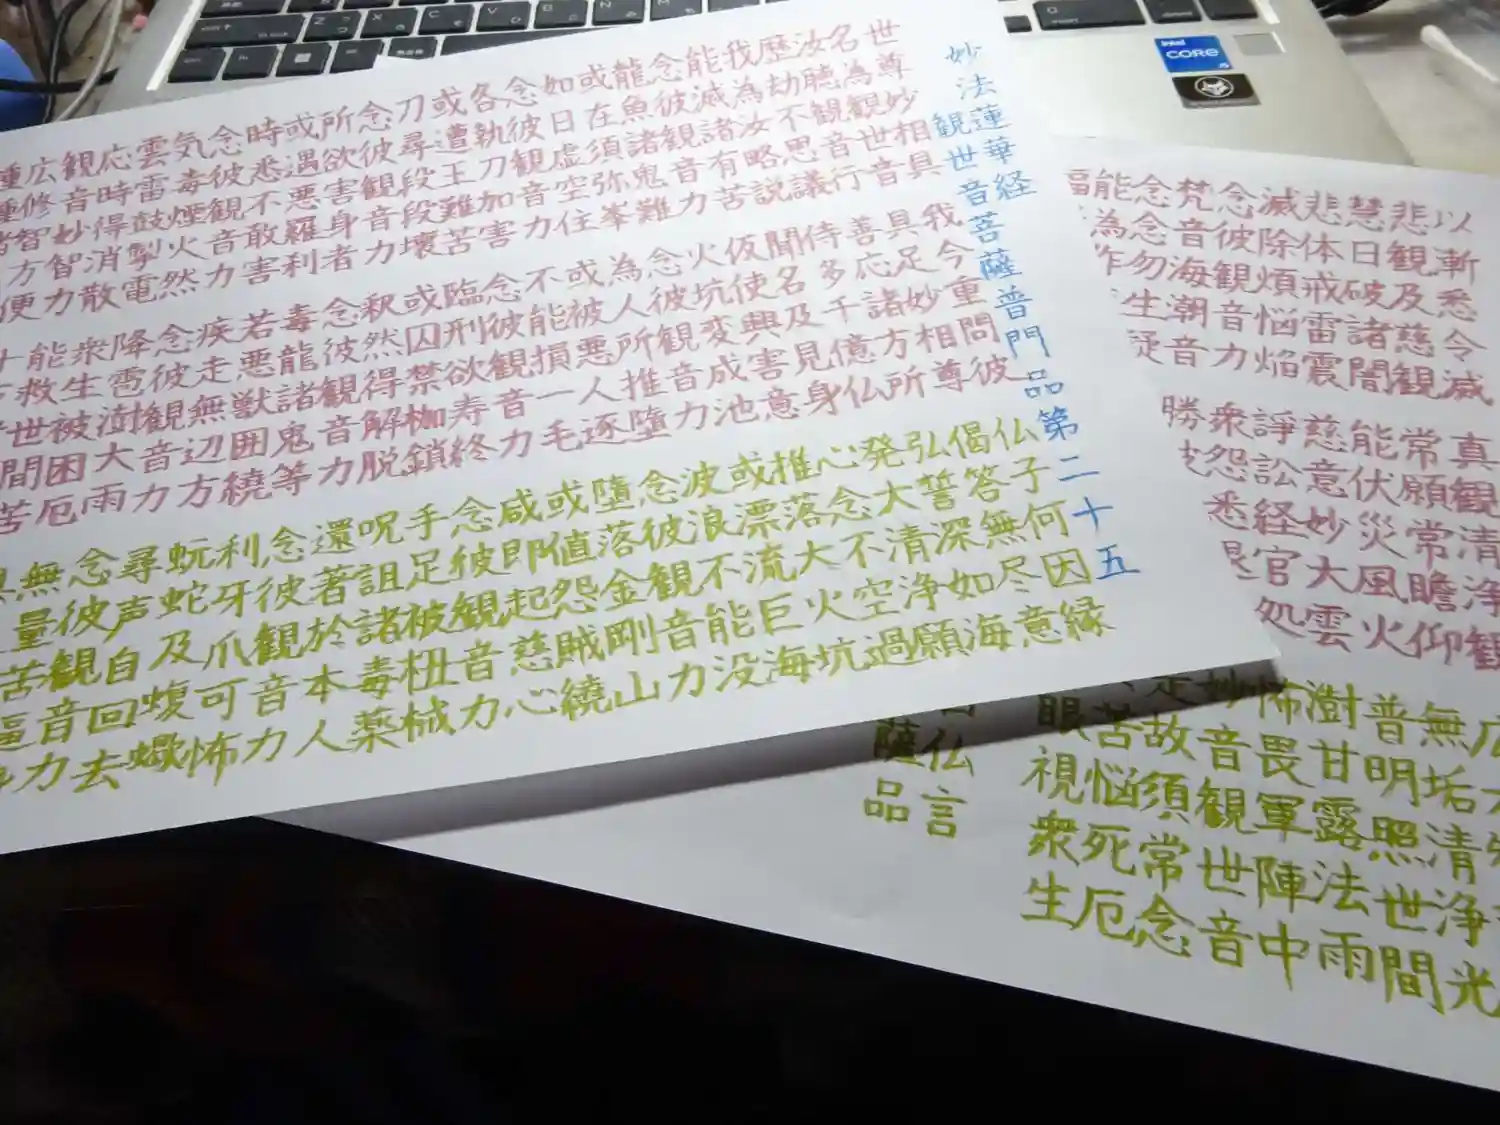 妙法蓮華経
観世音菩薩普門品第二十五
世尊妙相具 我今重問彼 仏子何因縁
名為観世音 具足妙相尊 偈答無尽意
汝聴観音行 善応諸方所 弘誓深如海
歴劫不思議 侍多千億仏 発大清浄願
我為汝略説 聞名及見身 心念不空過
能滅諸有苦 仮使興害意 推落大火坑
念彼観音力 火坑変成池 或漂流巨海
龍魚諸鬼難 念彼観音力 波浪不能没
或在須弥峯 為人所推墮 念彼観音力
如日虚空住 或被悪人逐 墮落金剛山
念彼観音力 不能損一毛 或値怨賊繞
各執刀加害 念彼観音力 咸即起慈心
或遭王難苦 臨刑欲寿終 念彼観音力
刀尋段段壊 或囚禁枷鎖 手足被杻械
念彼観音力 釈然得解脱 呪詛諸毒薬
所欲害身者 念彼観音力 還著於本人
或遇悪羅利 毒龍諸鬼等 念彼観音力
時悉不敢害 若悪獣囲繞 利牙爪可怖
念彼観音力 疾走無辺方 蚖蛇及蝮蠍
気毒煙火然 念彼観音力 尋声自回去
雲雷鼓掣電 降雹澍大雨 念彼観音力
応時得消散 衆生被困厄 無量苦逼身
観音妙智力 能救世間苦 具
広修智方便
以漸悉令滅 真観清浄観 広
悲観及慈観 常願常瞻仰 無垢清浄光
慧日破諸闇 能伏災風火 普明照世間
悲体戒雷震 慈意妙大雲 澍甘露法雨
滅除煩悩焔 諍訟経官処 怖畏軍陣中
念彼観音力 衆怨悉 妙音観世音
梵音海潮音 勝 故須常念
念念勿生 苦悩死厄
能為作
福 眼視衆生
仏言
薩品
intel
CORE